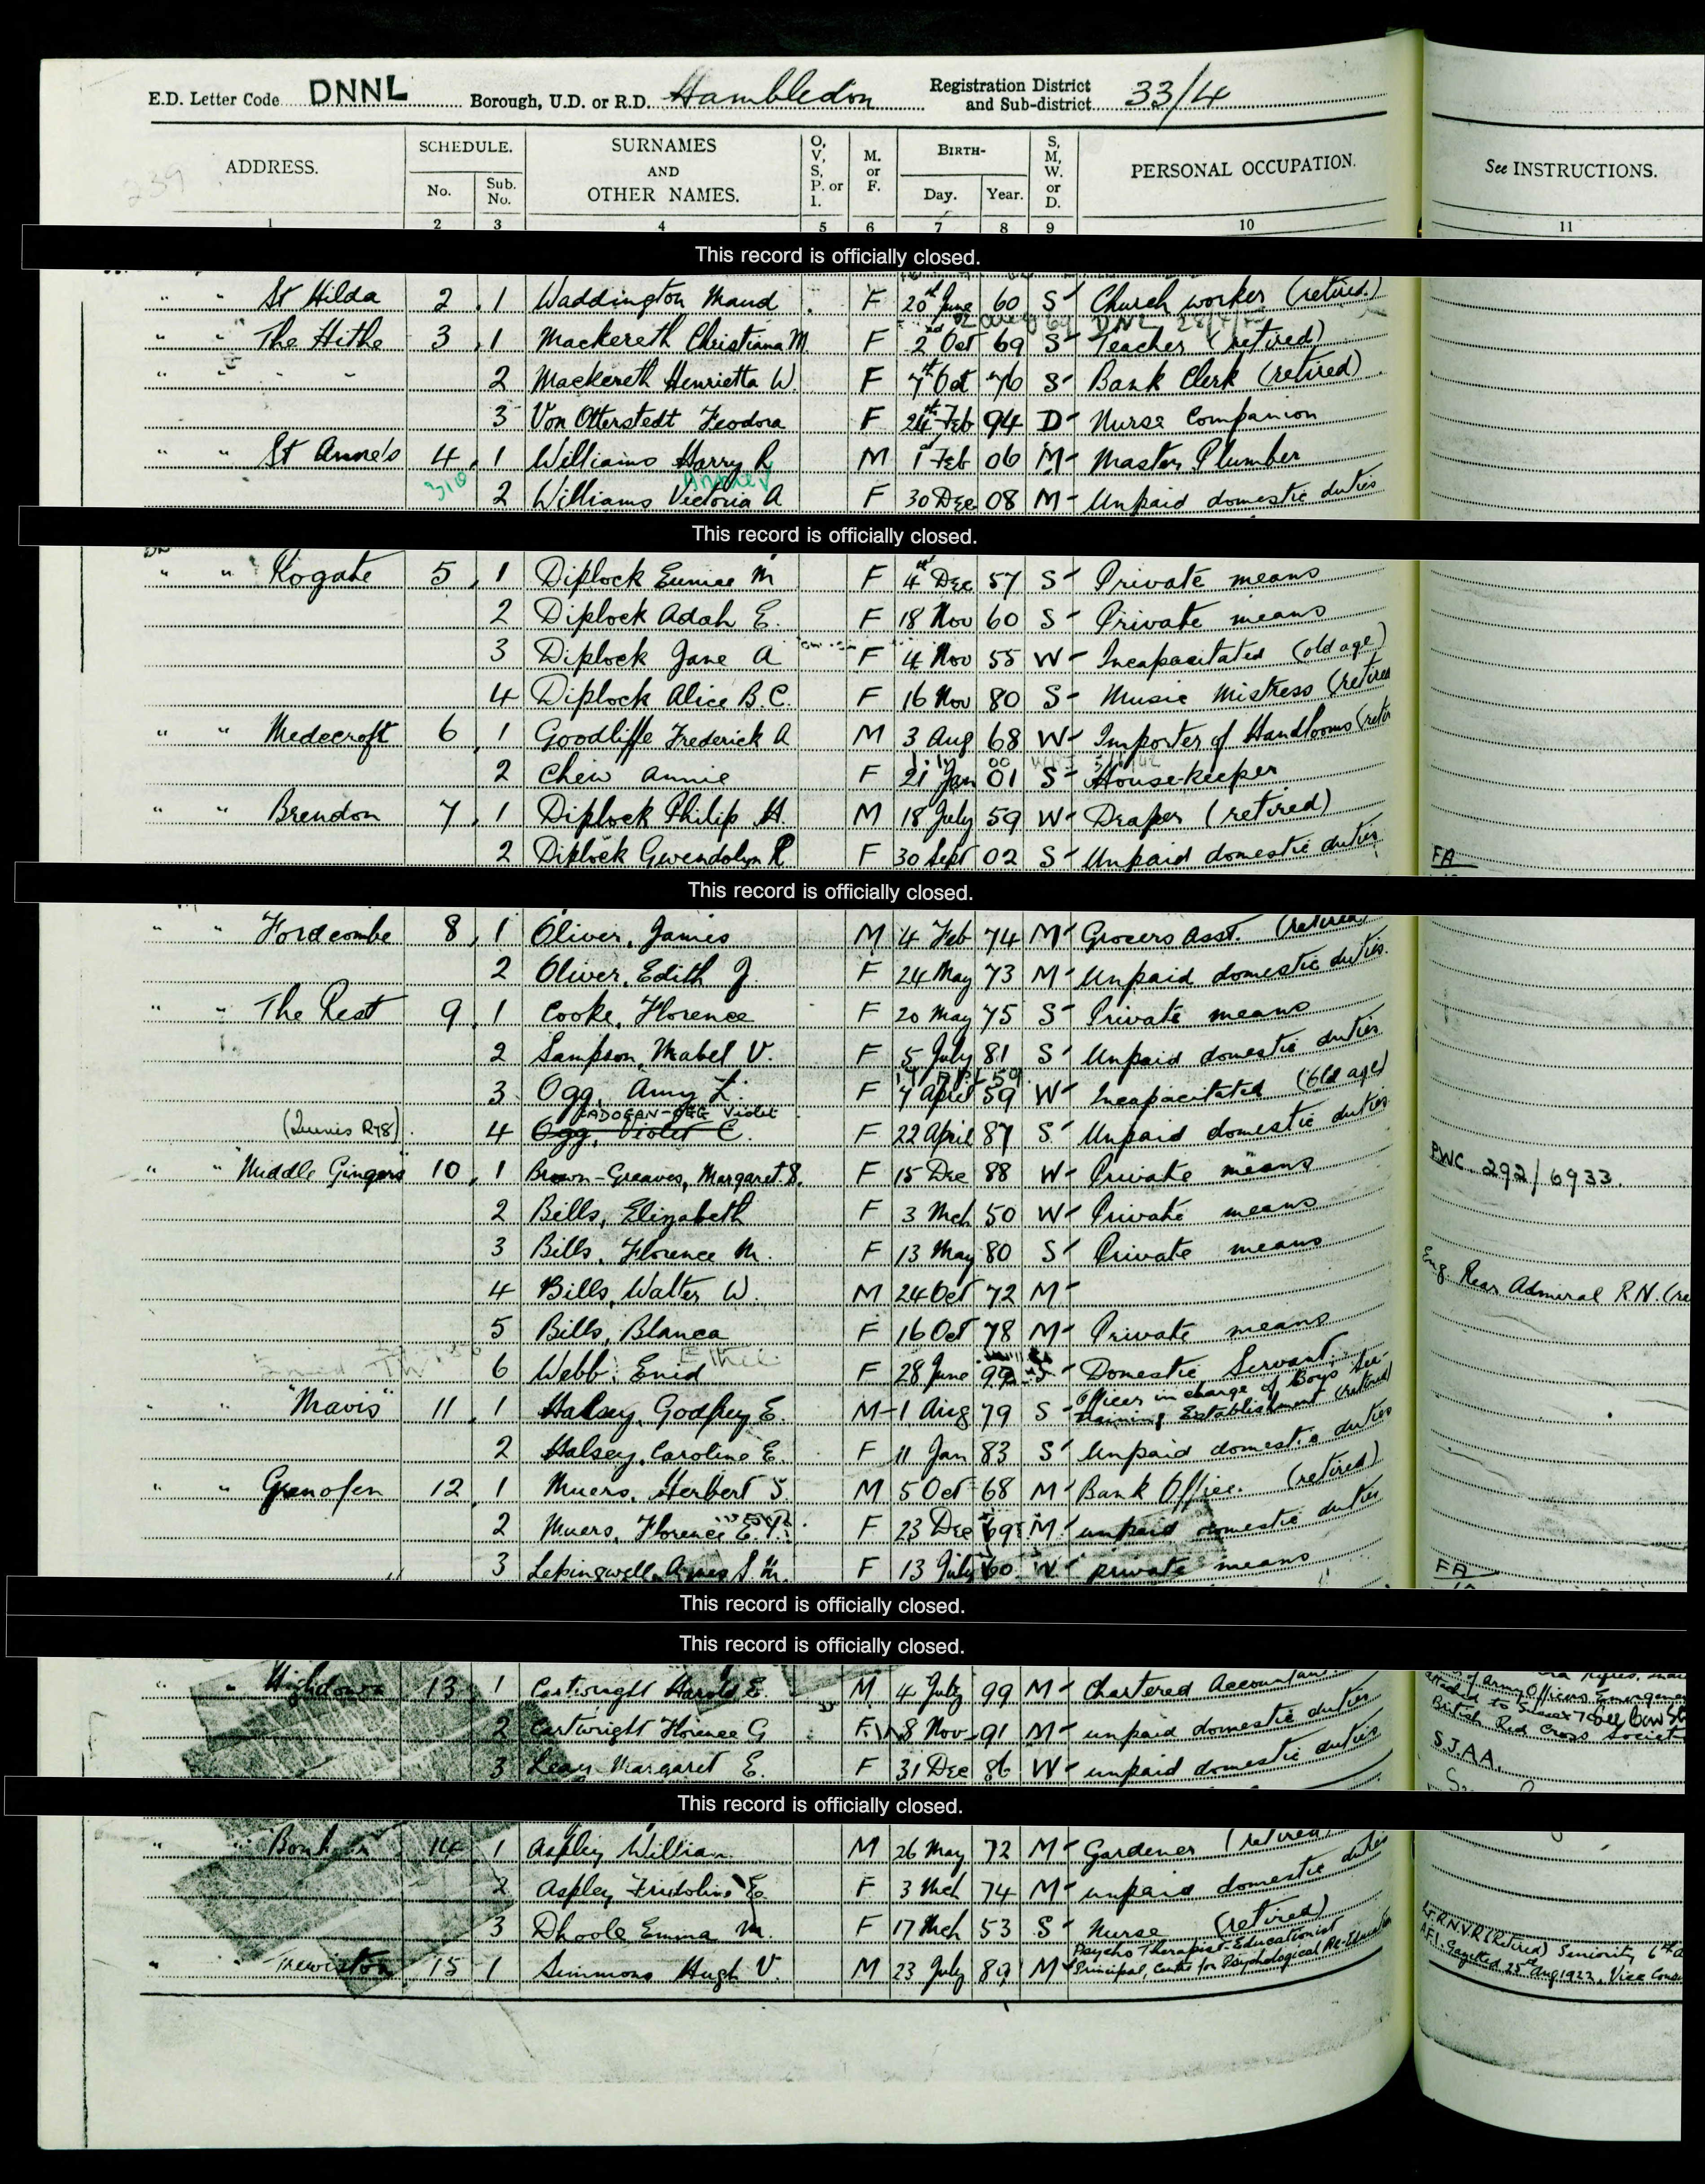 E.D. Letter Code DNNL Borough, U.D. or R.D. Hambledon Registration District and Sub-district 33/4
239
ADDRESS. SCHEDULE. No. Sub. No. SURNAMES AND OTHER NAMES. O, V, S, P. or I. M. or F. BIRTH- Day. Year. S, M, W. or D. PERSONAL OCCUPATION. See INSTRUCTIONS.
1 2 3 4 5 6 7 8 9 10 11
This record is officially closed.
" " St Hilda 2 1 Waddington Maud F 20th June 60 S Church worker (retired)
" " The Hithe 3 1 Mackereth Christiana M F 2nd Oct 69 S Teacher (retired)
" " " " 2 Mackereth Henrietta W. F 7th Oct 76 S Bank Clerk (retired)
3 Von Otterstedt Feodora F 24th Feb 94 D Nurse Companion
" " St Anne's 4 1 Williams Harry R M 1st Feb 06 M Master Plumber
310 2 Williams Victoria A F 30 Dec 08 M Unpaid domestic duties
This record is officially closed.
" " Rogate 5 1 Diplock Eunice M F 4th Dec 57 S Private means
2 Diplock Adah E. F 18 Nov 60 S Private means
3 Diplock Jane A F 4 Nov 55 W Incapacitated (old age)
4 Diplock Alice B.C. F 16 Nov 80 S Music Mistress (retired
" " Medecroft 6 1 Goodliffe Frederick A M 3 Aug 68 W Importer of Handlooms (retir
2 Chew Annie F 21 Jan 01 S House-keeper
" " Brendon 7 1 Diplock Philip H. M 18 July 59 W Draper (retired)
2 Diplock Gwendolyn R F 30 Sept 02 S Unpaid domestic duties FA
This record is officially closed.
" " Fordcombe 8 1 Oliver, James M 4 Feb 74 M Grocers Asst. (retired)
2 Oliver, Edith J. F 24 May 73 M Unpaid domestic duties.
" " The Rest 9 1 Cooke, Florence F 20 May 75 S Private means
2 Sampson, Mabel V. F 5 July 81 S Unpaid domestic duties
3 Ogg, Amy L. F 7 April 59 W Incapacitated (Old age)
CADOGAN-OGG Violet
4 Ogg, Violet C. F 22 April 87 S Unpaid domestic duties
" " "Middle Gingers" 10 1 Brown-Greaves, Margaret S. F 15 Dec 88 W Private means PWC 292/6933.
2 Bills, Elizabeth F 3 Mch 50 W Private means
3 Bills, Florence M. F 13 May 80 S Private means
4 Bills, Walter W. M 24 Oct 72 M Eng Rear Admiral R.N. (re
5 Bills, Blanca F 16 Oct 78 M Private means
6 Webb, Enid F 28 June 99 S Domestic Servant.
" " "Mavis" 11 1 Halsey, Godfrey E. M 1 Aug 79 S Officer in charge of Boys Training Establishment (retired)
2 Halsey, Caroline E. F 11 Jan 83 S Unpaid domestic duties
" " Grenofen 12 1 Muers, Herbert S. M 5 Oct 68 M Bank Office. (retired)
2 Muers, Florence F 23 Dec 69 M unpaid domestic duties
3 Lepingwell, Agnes S M. F 13 July 60 W private means FA
This record is officially closed.
This record is officially closed.
" " Highdown 13 1 Cartwright Harold E. M 4 July 99 M Chartered Accountant
2 Cartwright Florence G F 8 Nov 91 M unpaid domestic duties British Red Cross Societ
3 Margaret E. F 31 Dec 86 W unpaid domestic duties S.J.A.A.
This record is officially closed.
" " 14 1 Aspley William M 26 May 72 M Gardener (retired)
2 Aspley E F 3 Mch 74 M unpaid domestic duties
3 Dhoole Emma M. F 17 Mch 53 S Nurse (retired)
" " Trewiston 15 1 Simmons Hugh V. M 23 July 89 M Psycho Therapist-Educationist Principal, Centre for Psychological Re-Education
R.N.V.R (Retired) Seniority 6th
Gazetted 25th Aug 1922. Vice Cons